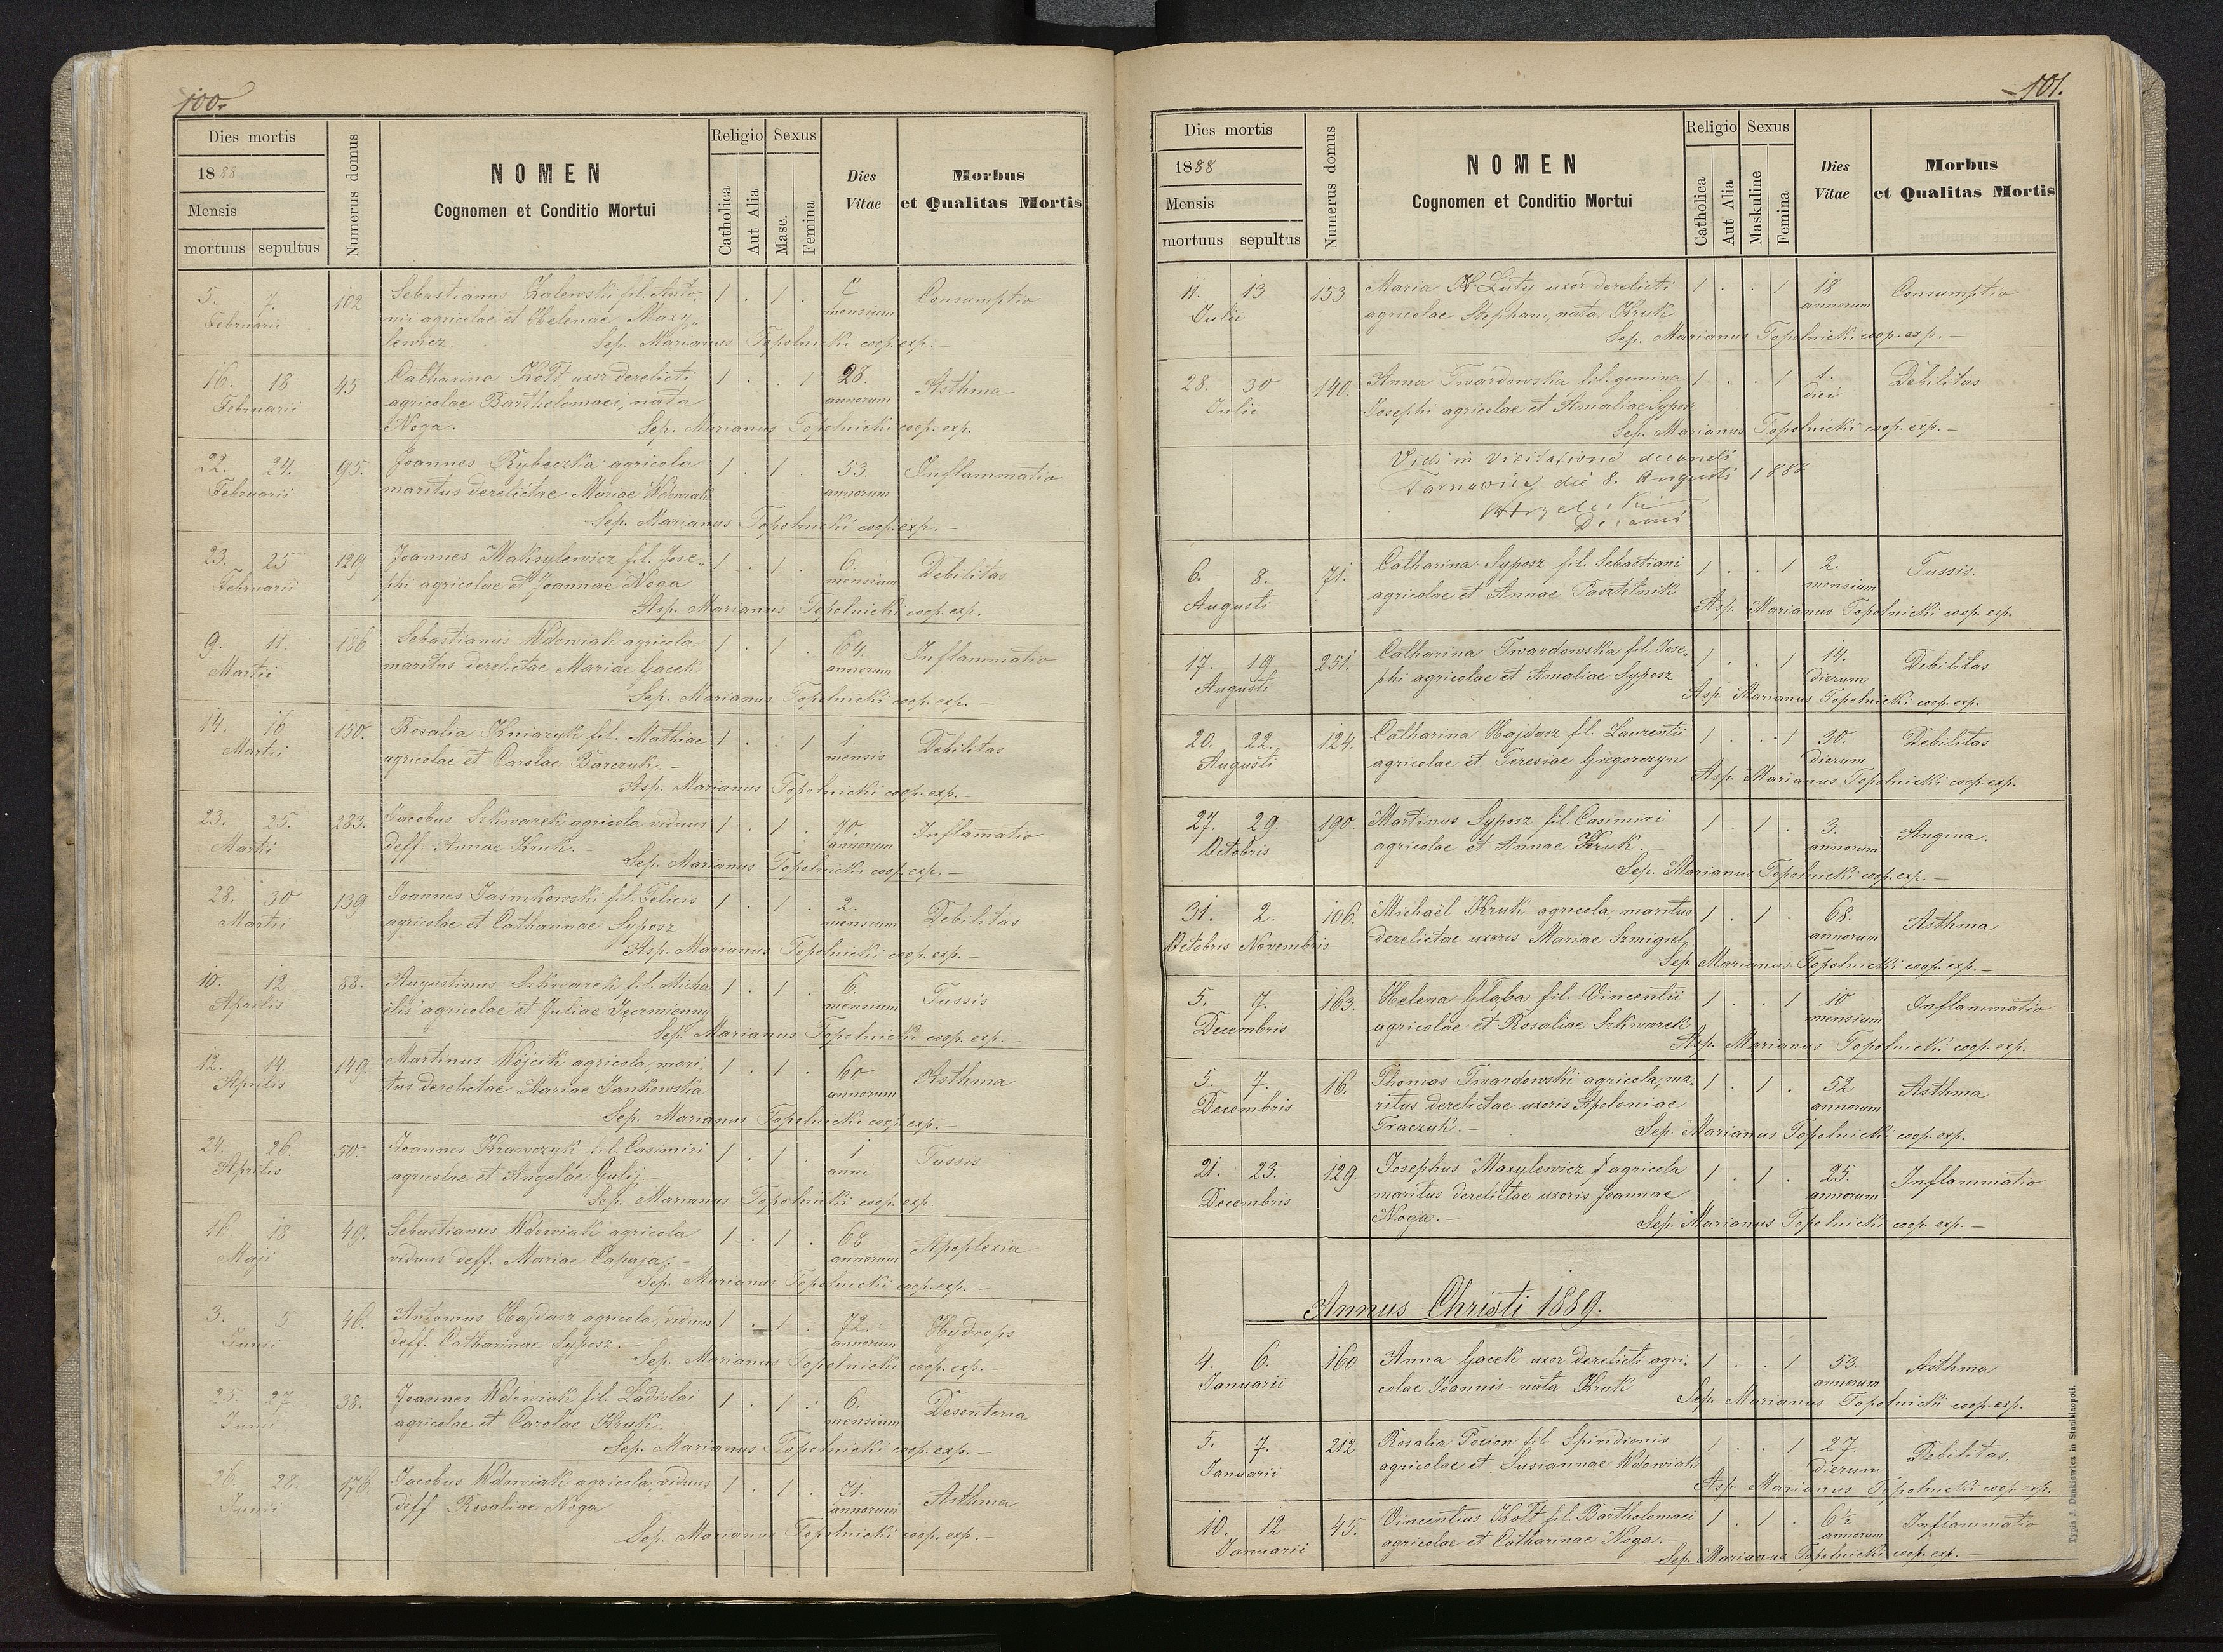 100.
Dies mortis
1888
Mensis
mortuus sepultus
Numerus domus
NOMEN
Cognomen et Conditio Mortui
Religio
Catholica
Aut Alia
Sexus
Masc.
Femina
Dies
Vitae
Morbus
et Qualitas Mortis
5. 7. 102 Sebastianus Zalewski fil. Anto- 1 . 1 . mensium Consumptio
Februarii nii agricolae et Helenae Maxy-
lewicz.- Sep. Marianus Topolnicki coop. exp.-
16. 18 45 Catharina Kott uxor derelicti 1 . . 1 28. annorum Asthma
Februarii agricolae Bartholomaei, nata
Noga.- Sep. Marianus Topolnicki coop. exp.
22. 24. 95. Joannes Rybeczka agricola 1 . 1 . 53. annorum Inflammatio
Februarii maritus derelictae Mariae Wdowiak
Sep. Marianus Topolnicki coop. exp.-
23. 25 129 Joannes Maksylewicz fil. Jose- 1 . 1 . 6. mensium Debilitas
Februarii phi agricolae et Joannae Noga
Asp. Marianus Topolnicki coop. exp.
9. 11. 186 Sebastianus Wdowiak agricola 1 . 1 . 64. annorum Inflammatio
Martii maritus derelictae Mariae Gacek
Sep. Marianus Topolnicki coop. exp.-
14. 16 150. Rosalia Kniażyk fil. Mathiae 1 . . 1 1. mensis Debilitas
Martii agricolae et Carolae Barczuk.-
Asp. Marianus Topolnicki coop. exp.-
23. 25. 283. Jacobus Szkwarek agricola viduus 1 . 1 . 70. annorum Inflamatio
Martii deff. Annae Kruk.
Sep. Marianus Topolnicki coop. exp.-
28. 30 139 Joannes Jaśnikowski fil. Felicis 1 . 1 . 2. mensium Debilitas
Martii agricolae et Catharinae Syposz
Asp. Marianus Topolnicki coop. exp.-
10. 12. 88. Augustinus Szkwarek fil. Micha 1 . 1 . 6. mensium Tussis
Aprilis ëlis agricolae et Juliae
Sep. Marianus Topolnicki coop. exp.-
12. 14. 149. Martinus Wójcik agricola, mari- 1 . 1 . 60 annorum Asthma
Aprilis tus derelictae Mariae Jankowska
Sep. Marianus Topolnicki coop. exp.-
24. 26. 50. Joannes Krawczyk fil. Casimiri 1 . 1 . 1 anni Tussis
Aprilis agricolae et Angelae Gulij.-
Sep. Marianus Topolnicki coop. exp.
16. 18 49. Sebastianus Wdowiak agricola 1 . 1 . 68 annorum Apoplexia
Maji viduus deff. Mariae Capaja.-
Sep. Marianus Topolnicki coop. exp.-
3. 5 46. Antonius Hajdasz agricola, viduus 1 . 1 . 72. annorum Hydrops
Junii deff. Catharinae Syposz.-
Sep. Marianus Topolnicki coop. exp.-
25. 27 38. Joannes Wdowiak fil. Ladislai 1 . 1 . 6. mensium Desenteria
Junii agricolae et Carolae Kruk.
Sep. Marianus Topolnicki coop. exp.-
26. 28. 176. Jacobus Wdowiak agricola, viduus 1 . 1 . 71. annorum Asthma
Junii deff. Rosaliae Noga
Sep. Marianus Topolnicki coop. exp.-
101.
Dies mortis
1888
Mensis
mortuus sepultus
Numerus domus
NOMEN
Cognomen et Conditio Mortui
Religio
Catholica
Aut Alia
Sexus
Maskuline
Femina
Dies
Vitae
Morbus
et Qualitas Mortis
11. 13 153 Maria Luty uxor derelicti 1 . . 1 18 annorum Consumptio
Julii agricolae Stephani, nata Kruk
Sep. Marianus Topolnicki coop. exp.-
28. 30 140. Anna Twardowska fil. gemina 1 . . 1 1. diei Debilitas
Julii Josephi agricolae et Amaliae Syposz
Sep. Marianus Topolnicki coop. exp.-
Vidi in Visitatione decanali
Tarnawica die 8. Augusti 1888
Decanus
6. 8. 71. Catharina Syposz fil. Sebastiani 1 . . 1 2. mensium Tussis.
Augusti agricolae et Annae Pasztetnik
Asp. Marianus Topolnicki coop. exp.
17. 19 251. Catharina Twardowska fil. Jose- 1 . . 1 14. dierum Debilitas
Augusti phi agricolae et Amaliae Syposz
Asp. Marianus Topolnicki coop. exp.
20. 22. 124. Catharina Hajdasz fil. Laurentii 1 . . 1 30. dierum Debilitas
Augusti agricolae et Teresiae Gregorczyn
Asp. Marianus Topolnicki coop. exp.
27. 29. 190. Martinus Syposz fil. Casimiri 1 . 1 . 3. annorum Angina.
Octobris agricolae et Annae Kruk.-
Sep. Marianus Topolnicki coop. exp.-
31. 2. 106. Michaël Kruk agricola, maritus 1 . 1 . 68. annorum Asthma
Octobris Novembris derelictae uxoris Mariae Szmigiel
Sep. Marianus Topolnicki coop. exp.-
5. 7. 163. Helena Głąba fil. Vincentii 1 . . 1 10 mensium Inflammatio
Decembris agricolae et Rosaliae Szkwarek
Asp. Marianus Topolnicki coop. exp.
5. 7. 16. Thomas Twardowski agricola, ma- 1 . 1 . 52 annorum Asthma
Decembris ritus derelictae uxoris Apoloniae
Traczuk.- Sep. Marianus Topolnicki coop. exp.
21. 23. 129. Josephus Maxylewicz agricola 1 . 1 . 25. annorum Inflammatio
Decembris maritus derelictae uxoris Joannae
Noga.- Sep. Marianus Topolnicki coop. exp.-
Annus Christi 1889.
4. 6. 160 Anna Gacek uxor derelicti agri- 1 . . 1 53. annorum Asthma
Januarii colae Joannis nata Kruk
Sep. Marianus Topolnicki coop. exp.
5. 7. 212 Rosalia Pocion fil. Spiridionis 1 . . 1 27. dierum Debilitas.
Januarii agricolae et Susannae Wdowiak
Asp. Marianus Topolnicki coop. exp.
10. 12 45. Vincentius Kott fil. Bartholomaei 1 . 1 . 6½ annorum Inflammatio
Januarii agricolae et Catharinae Noga.-
Sep. Marianus Topolnicki coop. exp.-
Typis J. Dankiewicz in Stanislaopoli.